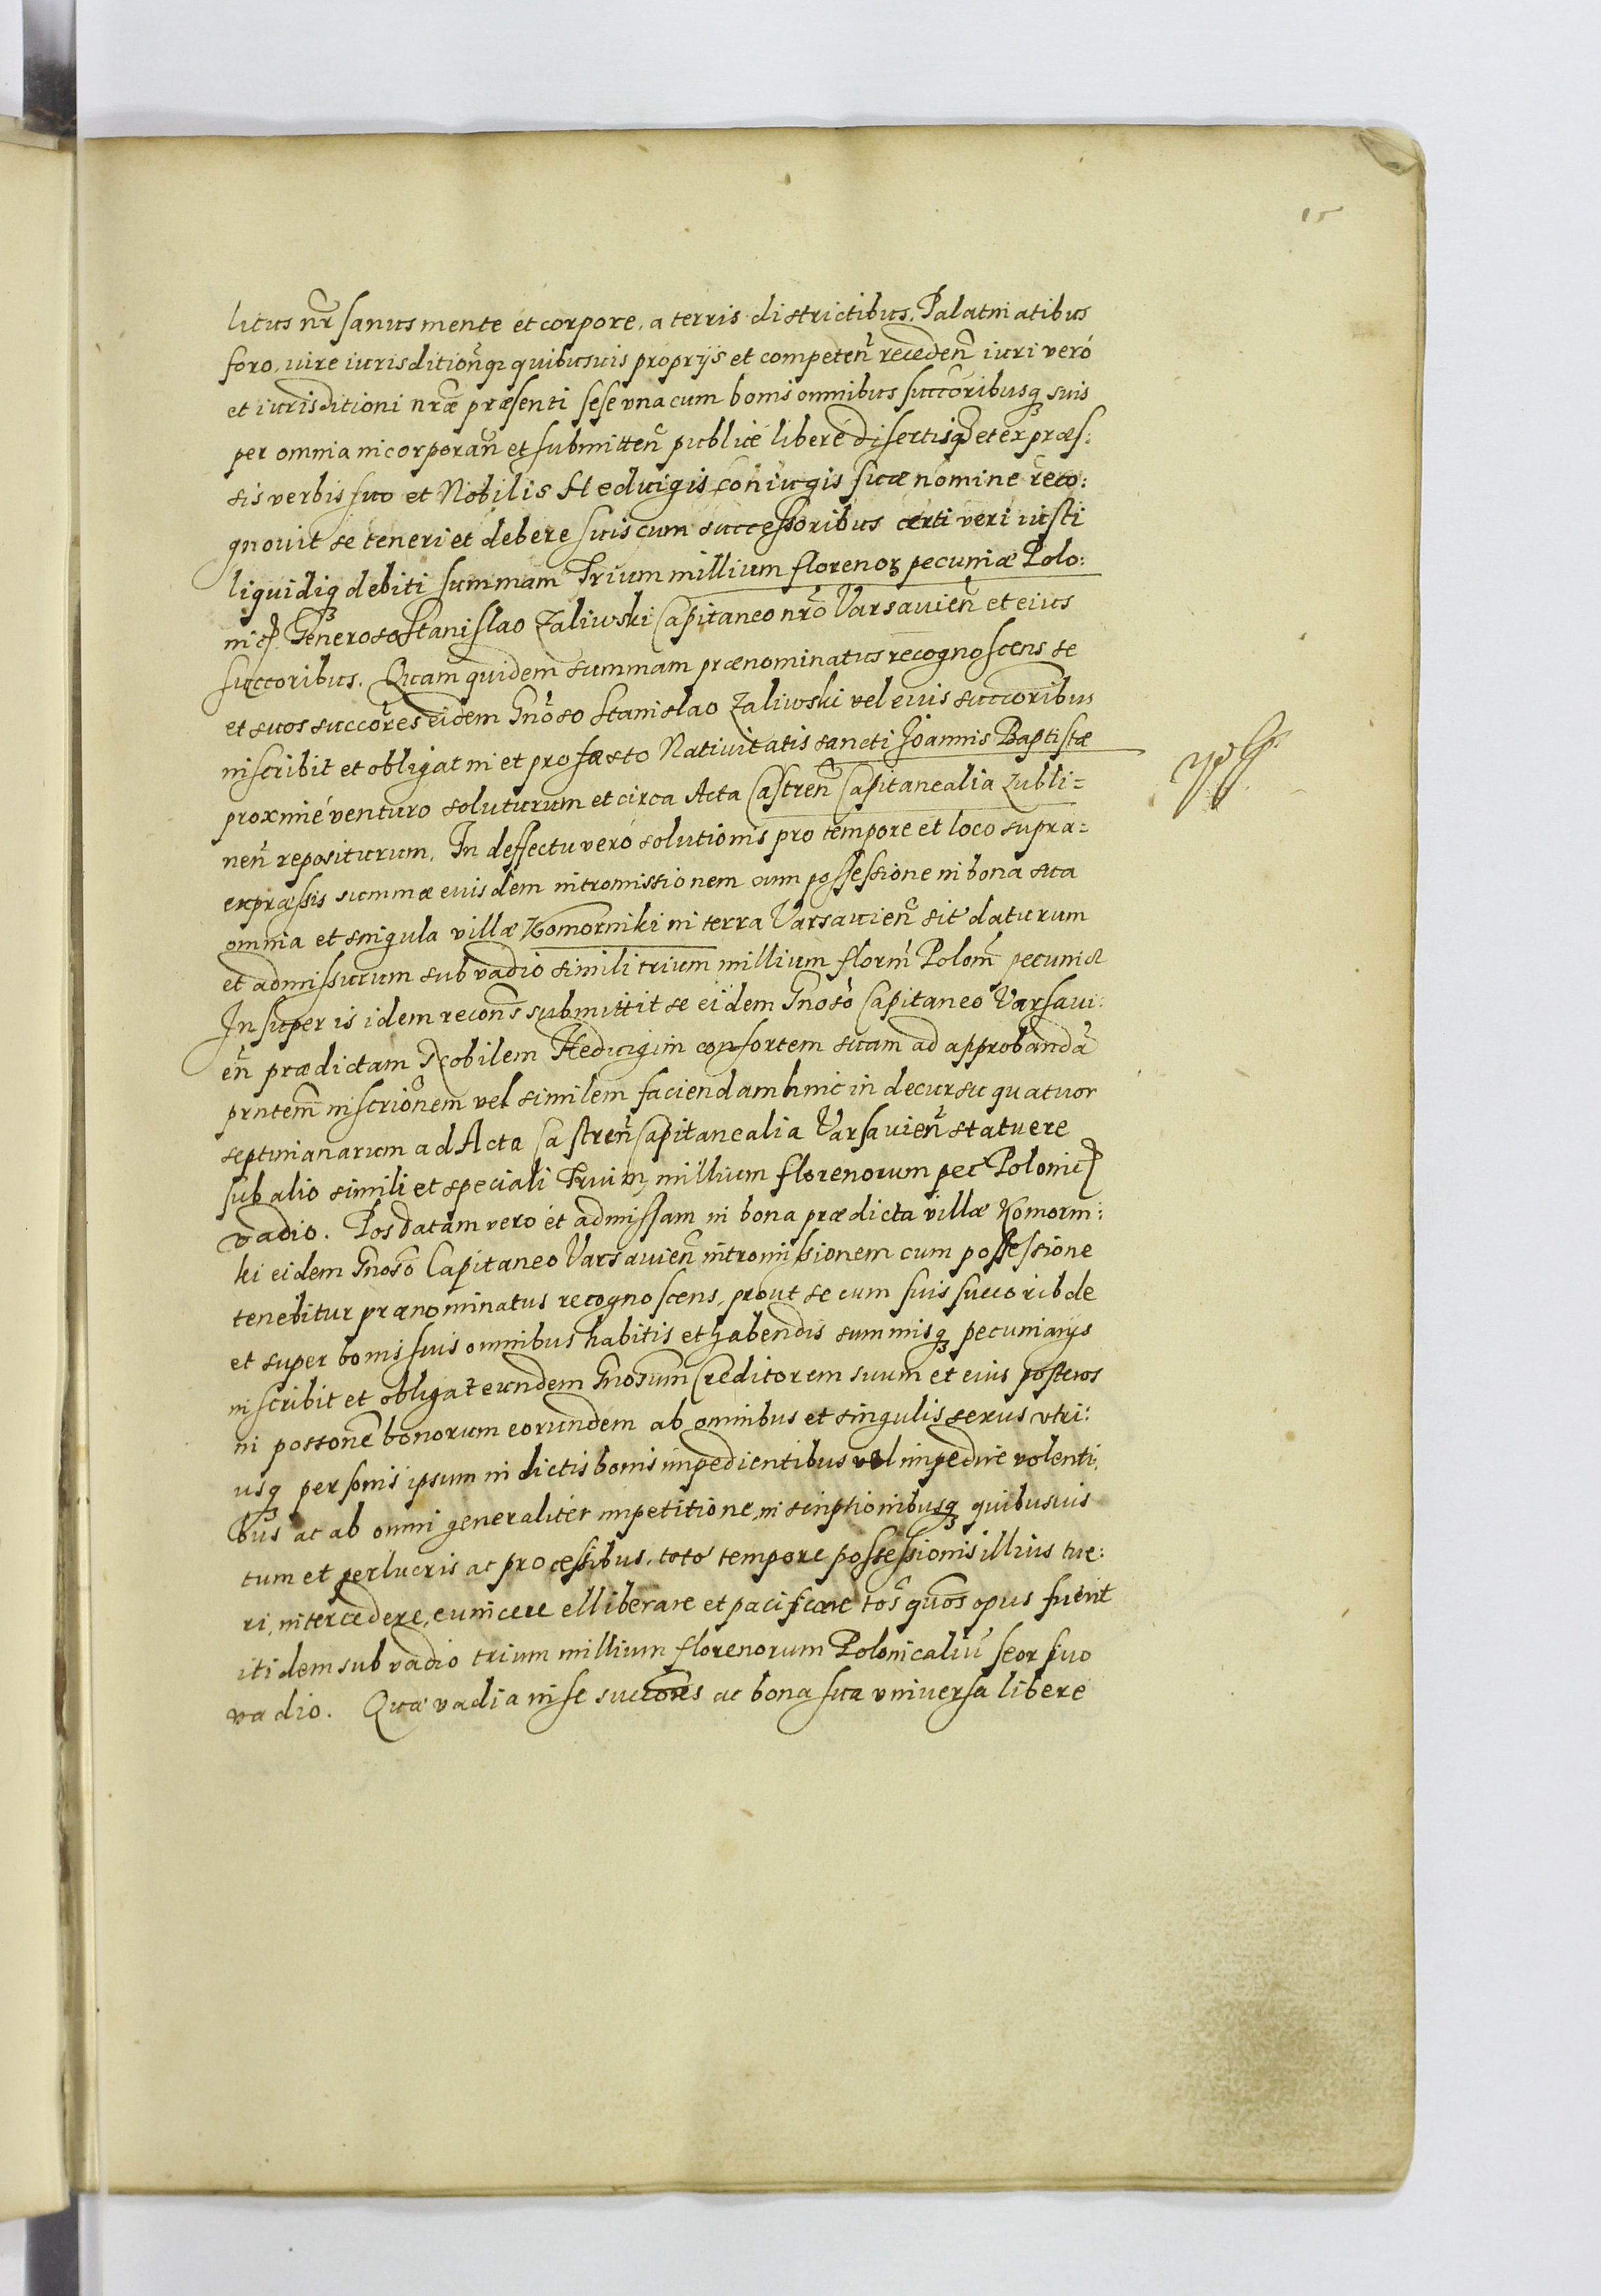 15
litus nr̃ sanus mente et corpore, a terris districtibus, Palatinatibus
foro, iure iurisditionq̃ quibusuis proprijs et competeñ recedeñ iuri veró
et iurisditioni nræ̃ præsenti sese vna cum bonis omnibus succõribusq suis
per omnia incorporañ et submitteñ publicé liberé disertisq et expræs:
sis verbis suo et Nobilis Heduigis coniugis suæ nomine reco:
gnouit se teneri et debere suis cum successoribus certi veri iusti
liquidiq debiti summam Trium millium florenoꝝ pecuniæ Polo:
nicꝭ Generoso Stanislao Zaliwski Capitaneo nrõ Varsauieñ et eius
succoribus. Quam quidem summam prænominatus recognoscens se
et suos succõres eidem Gnõso Stanislao Zaliwski vel euis succoribus
inscribit et obligat in et pro fæsto Natiuitatis sancti Joannis Baptistæ
proximé venturo soluturum et circa Acta Castreñ Capitanealia Lubli=
neñ repositurum. In deffectu veró solutionis pro tempore et loco supra=
expræssis summæ euisdem intromissionem cum possessione in bona sua
omnia et singula villæ Komorniki in terra Varsauieñ sit' daturum
et admissurum sub vadio simili trium millium florñ Poloñ pecuniæ
Insuper is idem recoñs submittit se eidem Gnoso Capitaneo Varsaui:
eñ prædictam Nobilem Heduigim consortem suam ad approbandã
prntem̃ inscriõnem vel similem faciendam hinc in decursu quatuor
septimanarum ad Acta Castreñ Capitanealia Varsauieñ statuere
sub alio simili et speciali Trium millium florenorum pec Polonicꝭ
vadio. Pos datam vero et admissam in bona prædicta villæ Komorni:
ki eidem Gnoso Capitaneo Varsauieñ intromissionem cum possessione
tenebitur prænominatus recognoscens, prout se cum suis succorib de
et super bonis suis omnibus habitis et habendis summisq pecuniarijs
inscribit et obligat eundem Gnosum Creditorem suum et eius posteros
in possone bonorum eorundem ab omnibus et singulis sexus vtri:
usq personis ipsum in dictis bonis impedientibus vel impedire volenti,
bus ac ab omni generaliter impetitione, inscriptionibusq quibusuis
tum et perlucris ac processibus, toto tempore possessionis illius tue:
ri, intercedere, euincere elliberare et pacificare tos quos opus fuerit
itidem sub vadio trium millium florenorum Polonicaliu seorsiuo
vadio. Quæ vadia in se succores ac bona sua vniuersa libere